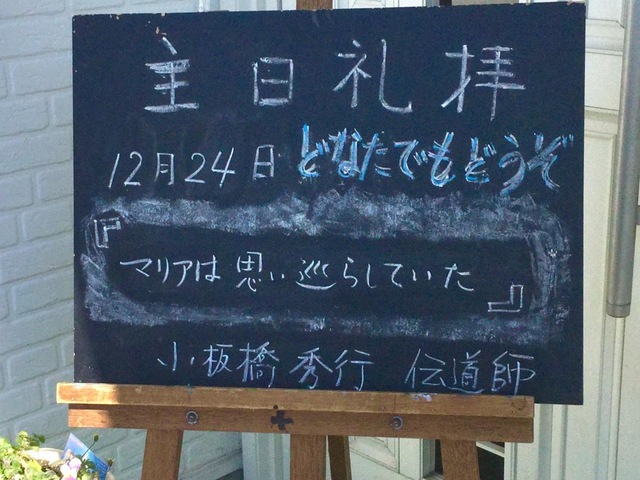 主日礼拝
12月24日 どなたでもどうぞ
『マリアは思い巡らしていた』
小板橋秀行 伝道師